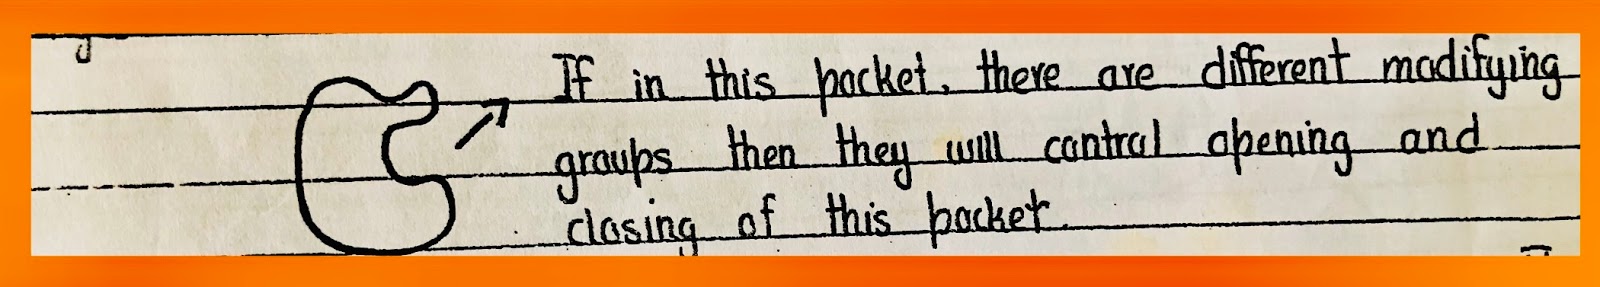 If in this pocket, there are different modifying
groups then they will control opening and
closing of this pocket.